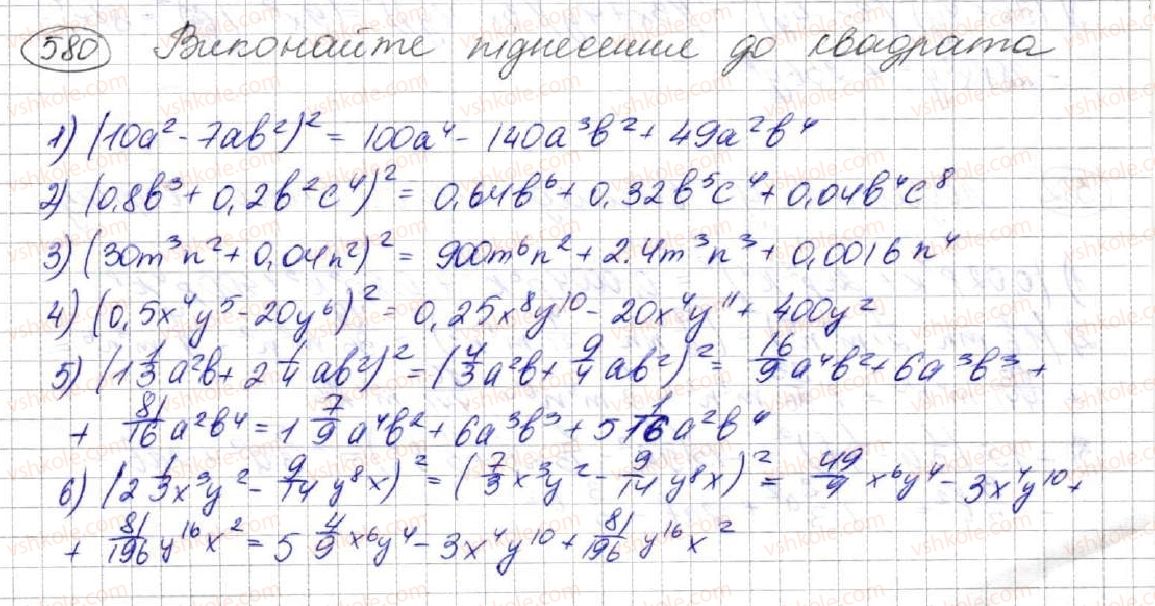 580 Виконайте піднесення до квадрата
1) (10a² - 7ab²)² = 100a⁴ - 140a³b² + 49a²b⁴
2) (0,8b³ + 0,2b²c⁴)² = 0,64b⁶ + 0,32b⁵c⁴ + 0,04b⁴c⁸
3) (30m³n² + 0,04n²)² = 900m⁶n² + 2.4m³n³ + 0,0016n⁴
4) (0,5x⁴y⁵ - 20y⁶)² = 0,25x⁸y¹⁰ - 20x⁴y¹¹ + 400y²
5) (1 1/3 a²b + 2 1/4 ab²)² = (4/3 a²b + 9/4 ab²)² = 16/9 a⁴b² + 6a³b³ +
+ 81/16 a²b⁴ = 1 7/9 a⁴b² + 6a³b³ + 5 1/16 a²b⁴
6) (2 1/3 x³y² - 9/14 y⁸x)² = (7/3 x³y² - 9/14 y⁸x)² = 49/9 x⁶y⁴ - 3x⁴y¹⁰ +
+ 81/196 y¹⁶x² = 5 4/9 x⁶y⁴ - 3x⁴y¹⁰ + 81/196 y¹⁶x²
vshkole.com